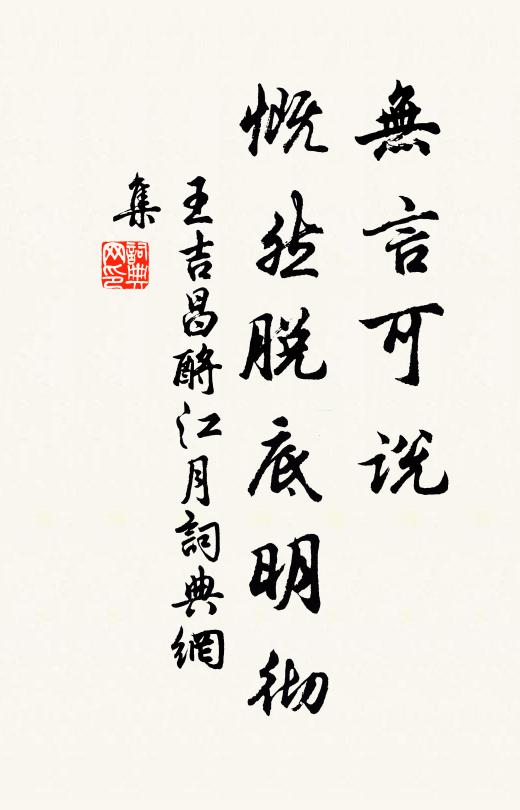 無言可説
慨然脱底明彻
王吉昌酹江月詞典網
集
詞典
网印